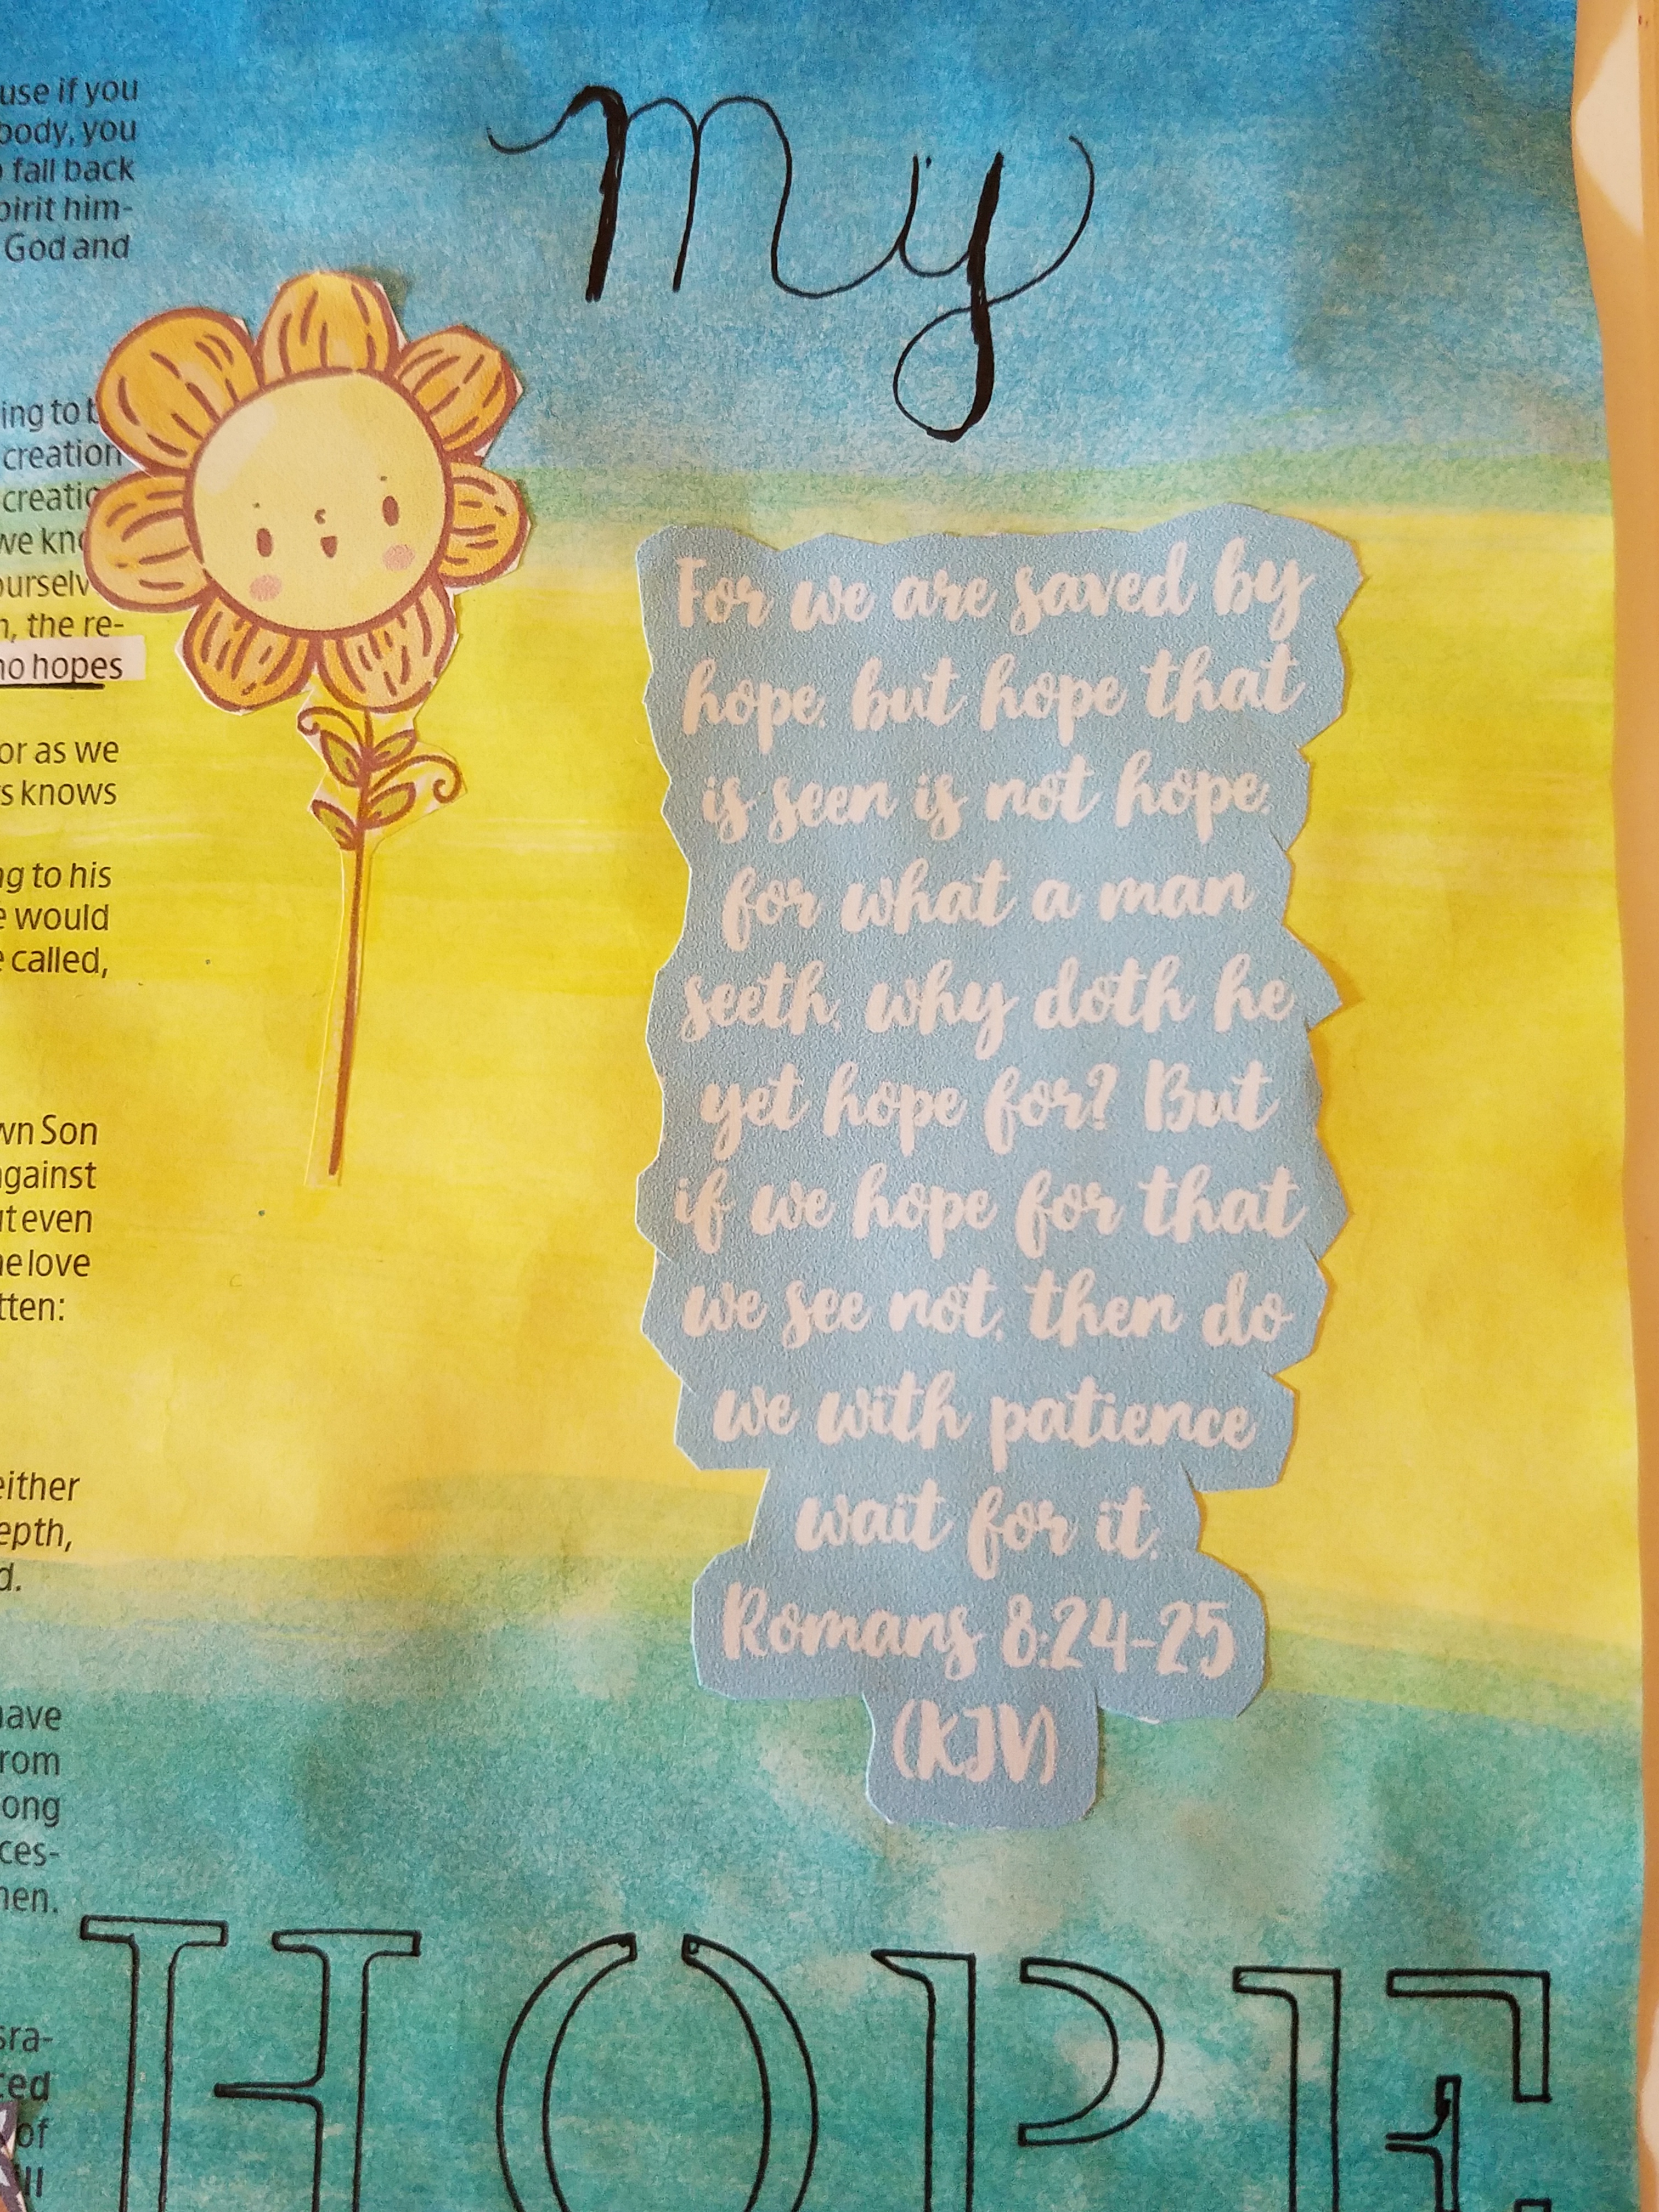 use if you
body, you
fall back
pirit him-
God and
My
ing to b
creation
creatio
we kno
ourselv
n, the re-
no hopes
or as we
s knows
ng to his
e would
e called,
wn Son
against
ut even
he love
tten:
either
epth,
d.
For we are saved by
hope, but hope that
is seen is not hope:
for what a man
seeth, why doth he
yet hope for? But
if we hope for that
we see not, then do
we with patience
wait for it.
Romans 8:24-25
(KJV)
have
rom
ong
ces-
men.
sra-
ted
of
ll
HOPE